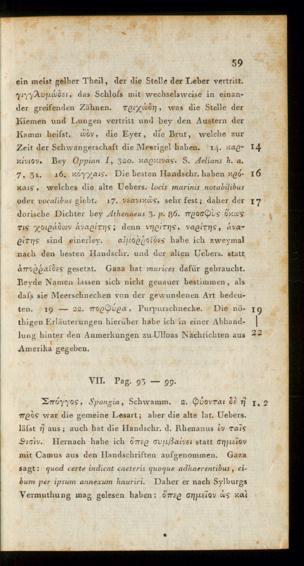 59
ein meist gelber Theil, der die Stelle der Leber vertritt.
γιγγλυμώδει, das Schloſs mit wechselsweise in einan-
der greifenden Zähnen. τριχώδη, was die Stelle der
Kiemen und Lungen vertritt und bey den Austern der
Kamm heiſst. ὠὸν, die Eyer, die Brut, welche zur
Zeit der Schwangerschaft die Mestigel haben. 14. καρ- 14
κίνιον. Bey Oppian I, 320. καρκινας. S. Aelians h. a.
7, 31. 16. κόγχαις. Die besten Handschr. haben κρό- 16
καις, welches die alte Uebers. locis marinis notabilibus
oder vocalibus giebt. 17. νεανικῶς, sehr fest; daher der 17
dorische Dichter bey Athenaeus 3. p. 86. προσφὺς ὅκως
τις χοιράδων ἀναρίτης; denn νηρίτης, ναρίτης, ἀνα-
ρίτης sind einerley. αἱμοῤῥοΐδος habe ich zweymal
nach den besten Handschr. und der alten Uebers. statt
ἀποῤῥαΐδος gesetzt. Gaza hat marices dafür gebraucht.
Beyde Namen lassen sich nicht genauer bestimmen, als
daſs sie Meerschnecken von der gewundenen Art bedeu-
ten. 19 — 22. πορφύρα, Purpurschnecke. Die nö- 19
thigen Erläuterungen hierüber habe ich in einer Abhand- |
lung hinter den Anmerkungen zu Ulloas Nachrichten aus 22
Amerika gegeben.
VII. Pag. 93 — 99.
Σπόγγος, Spongia, Schwamm. 2. φύονται δὲ ἢ 1. 2
πρὸς war die gemeine Lesart; aber die alte lat. Uebers.
läſst ἢ aus; auch hat die Handschr. d. Rhenanus ἐν ταῖς
θισίν. Hernach habe ich ὅπερ συμβαίνει statt σημεῖον
mit Camus aus den Handschriften aufgenommen. Gaza
sagt: quod certe indicat caeteris quoque adhaerentibus, ci-
bum per ipsum annexum hauriri. Daher er nach Sylburgs
Vermuthung mag gelesen haben: ὅπερ σημεῖον ὡς καὶ